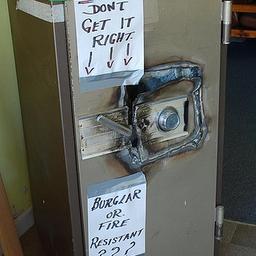 DONT
GET IT
RIGHT
BURGLAR
OR
FIRE
RESISTANT
???